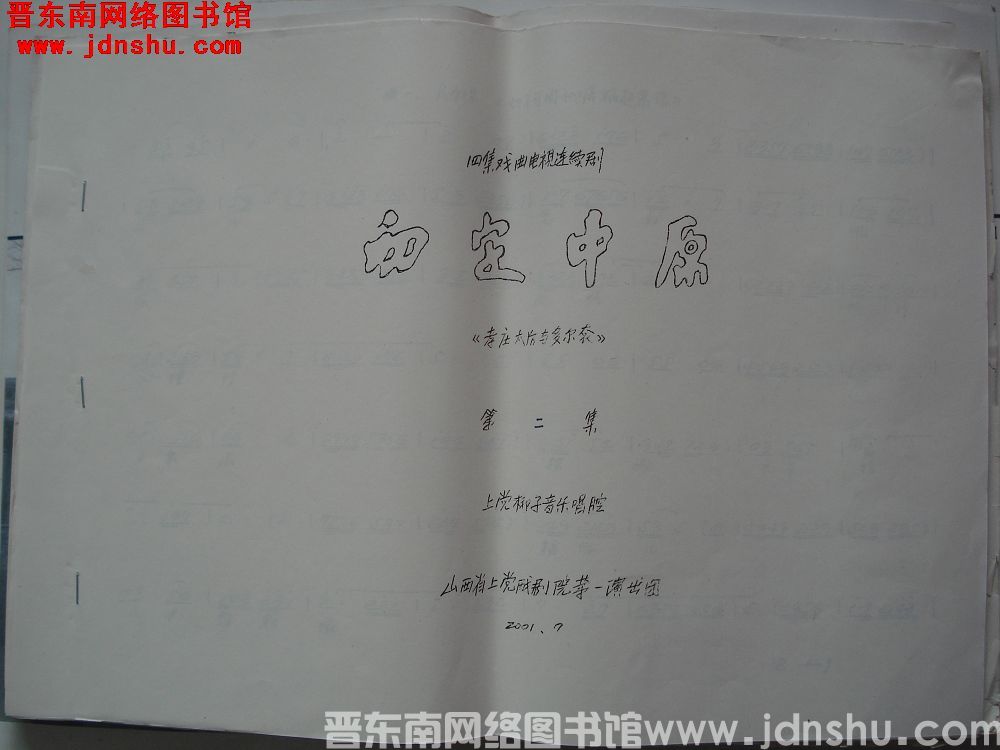 晋东南网络图书馆
www.jdnshu.com
四集戏曲电视连续剧
初定中原
《孝庄太后与多尔衮》
第 二 集
上党梆子音乐唱腔
山西省上党戏剧院第一演出团
2001.7
晋东南网络图书馆www.jdnshu.com